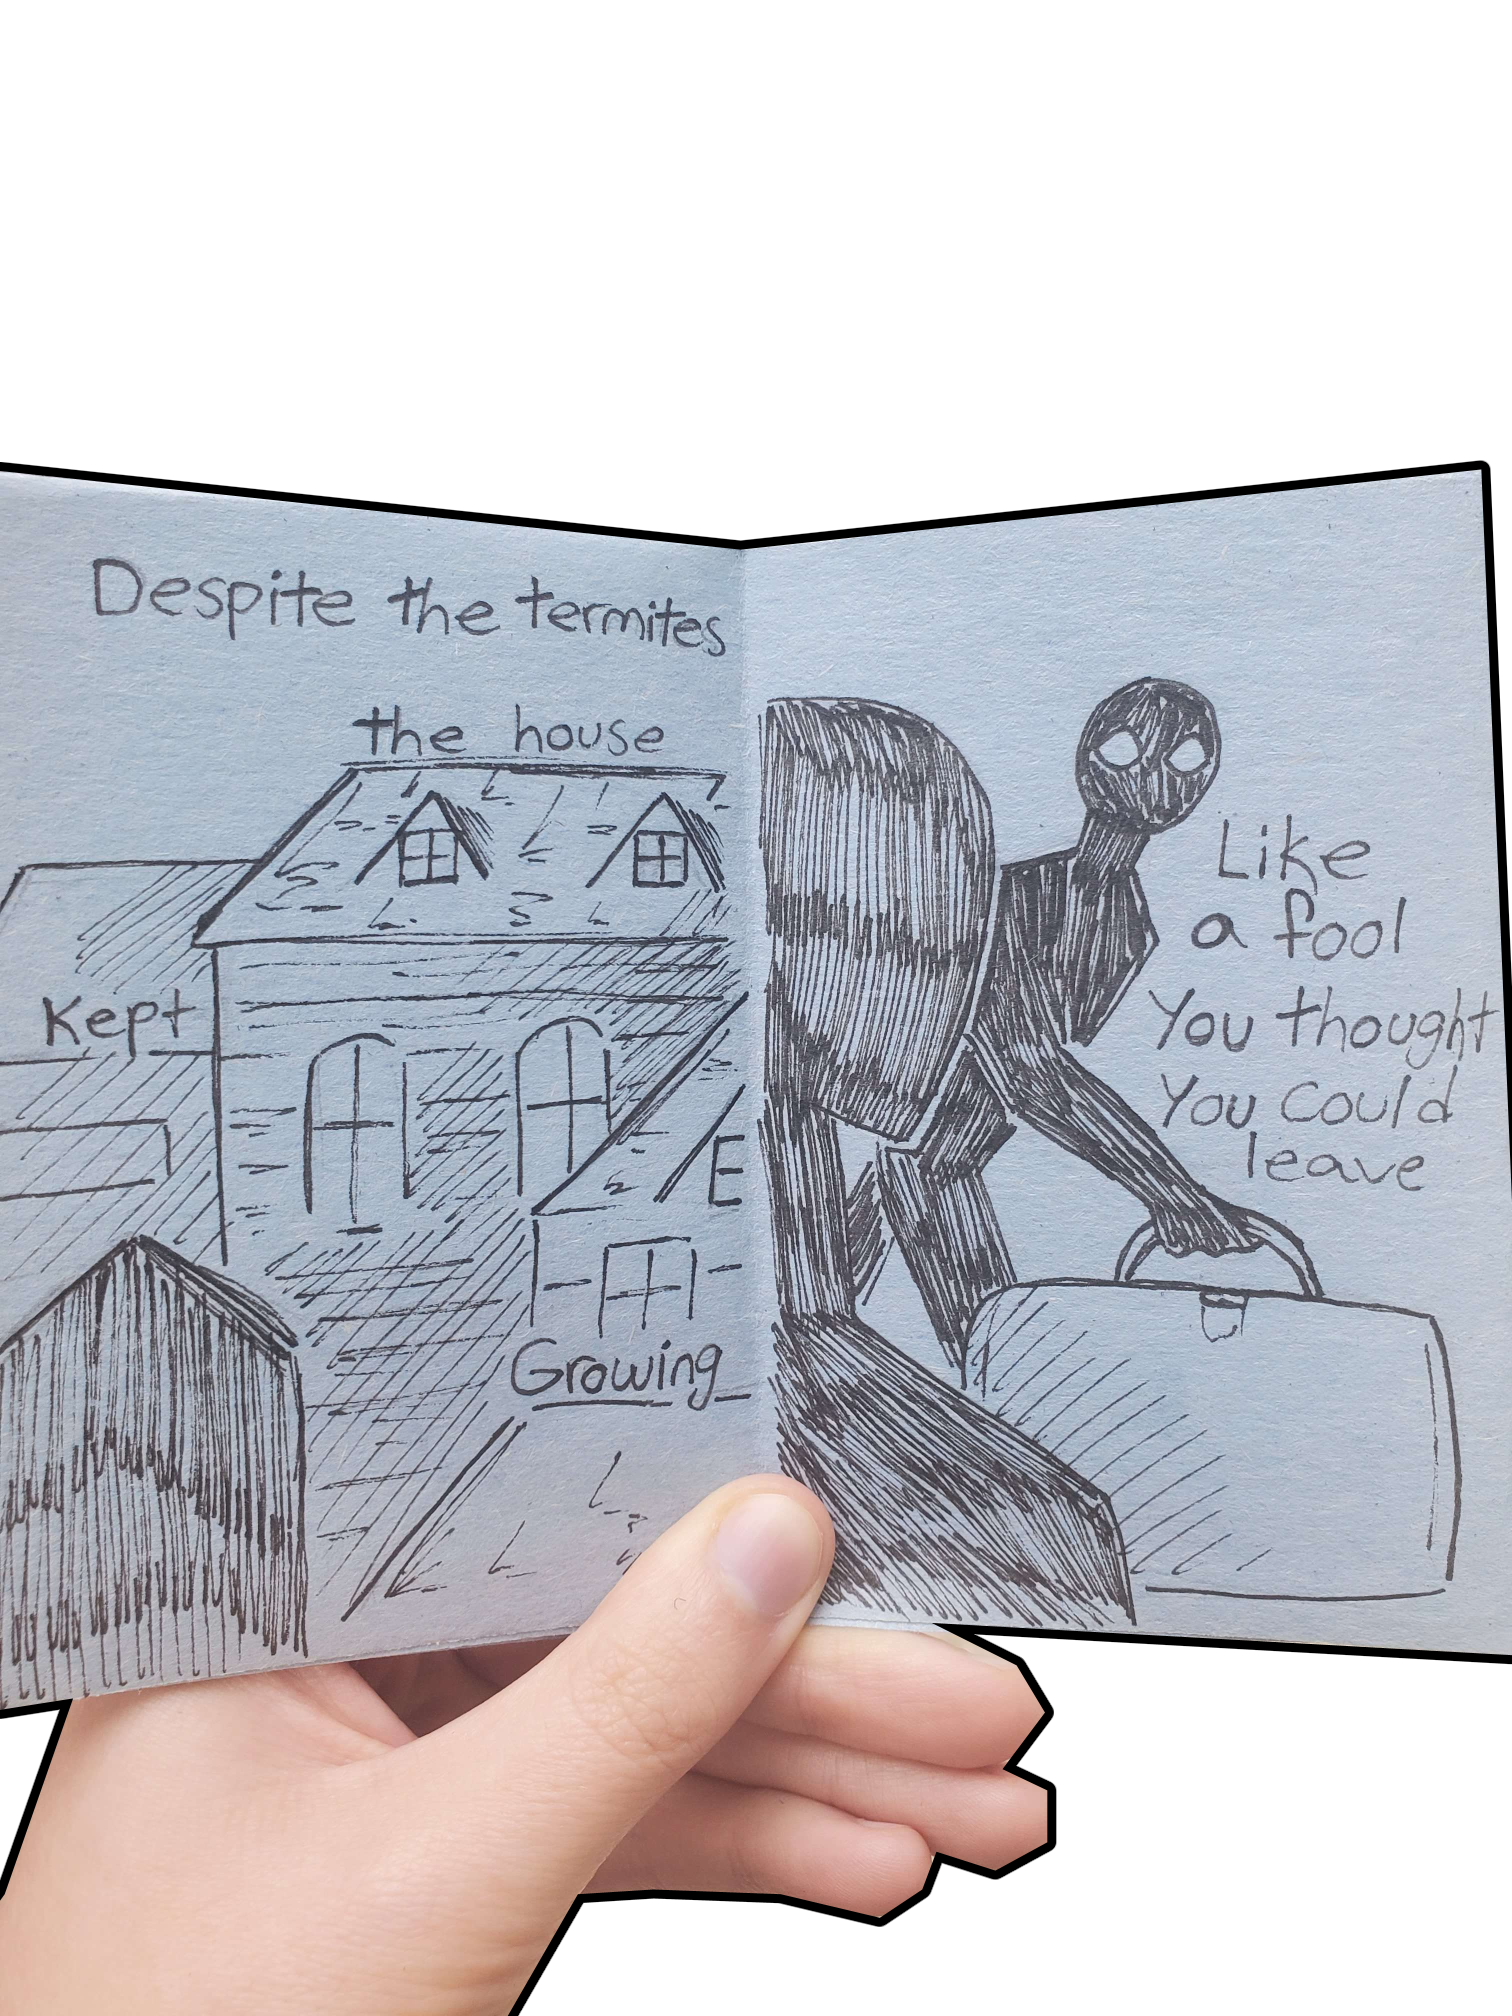 Despite the termites
the house
Kept
Growing
Like
a fool
You thought
You could
leave